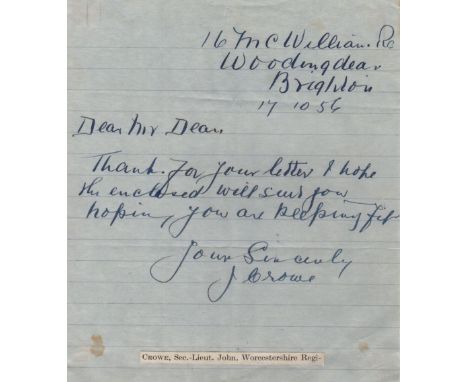 16 McWilliam. Rd
Woodingdean
Brighton
17 10 56
Dear Mr Dean,
Thank. for your letter I hope
the enclosed will suit you
hopin, you are keeping fit
Yours Sincerely
J Crowe
CROWE, Sec.-Lieut. John, Worcestershire Regi-